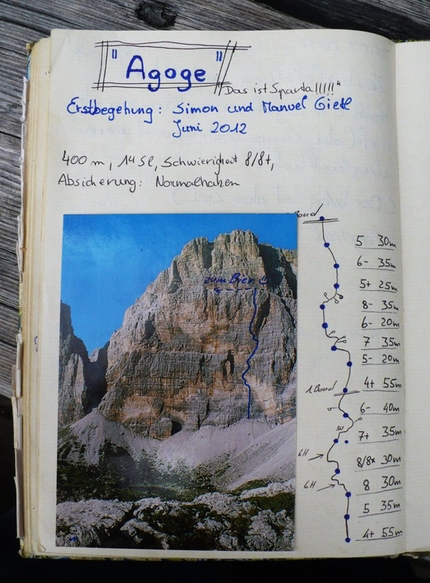 "Agoge"
"Das ist Sparta!!!!!"
Erstbegehung: Simon und Manuel Gietl
Juni 2012
400 m, 14 Sl, Schwierigkeit 8/8+,
Absicherung: Normalhaken
zum Bier
Band
5 30m
6- 35m
5+ 25m
8- 35m
6- 20m
7 35m
5- 20m
4+ 55m
1. Band
6- 40m
7+ 35m
8/8+ 30m
6H
8 30m
6H
5 35m
4+ 55m